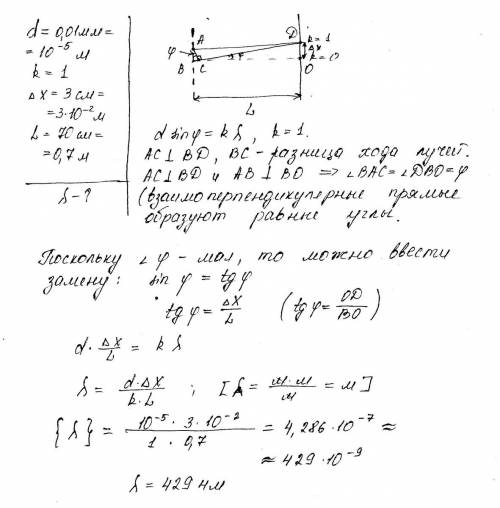 d = 0,01мм =
= 10⁻⁵ м
k = 1
Δx = 3 см =
= 3·10⁻² м
L = 70 см =
= 0,7 м
λ - ?
A D k = 1
φ φ Δx
B C O k = 0
L
d sinφ = kλ, k = 1.
AC⊥BD, BC - разница хода лучей.
AC⊥BD и AB⊥BO => ∠BAC = ∠DBO = φ
(взаимоперпендикулярные прямые
образуют равные углы.
Поскольку ∠φ - мал, то можно ввести
замену: sin φ = tgφ
tgφ = Δx/L (tgφ = OD/BO)
d · Δx/L = kλ
λ = d·Δx/k·L ; [λ = м·м/м = м]
{λ} = 10⁻⁵ · 3·10⁻²/1 · 0,7 = 4,286·10⁻⁷ ≈
≈ 429·10⁻⁹
λ = 429 нм